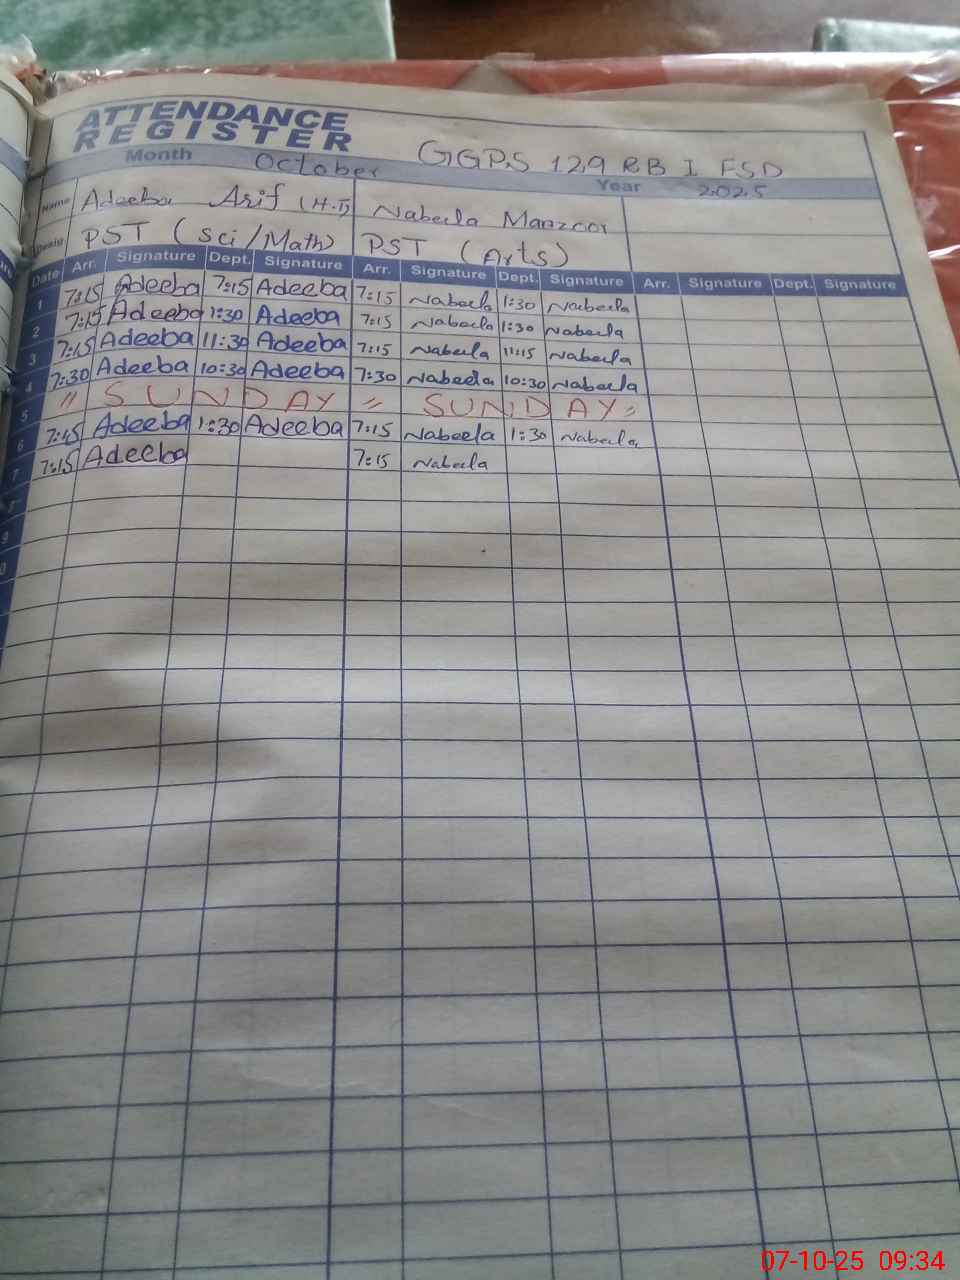 ATTENDANCE
REGISTER
GGPS 129 RB I FSD
Month October Year 2025
Name Adeeba Arif (H.T) Nabeela Manzoor
Desig PST (Sci/Math) PST (Arts)
Date Arr. Signature Dept. Signature Arr. Signature Dept. Signature Arr. Signature Dept. Signature
1 7:15 Adeeba 7:15 Adeeba 7:15 Nabeela 1:30 Nabeela
2 7:15 Adeeba 1:30 Adeeba 7:15 Nabeela 1:30 Nabeela
3 7:15 Adeeba 11:30 Adeeba 7:15 Nabeela 11:15 Nabeela
4 7:30 Adeeba 10:30 Adeeba 7:30 Nabeela 10:30 Nabeela
5 " SUNDAY " SUNDAY "
6 7:15 Adeeba 1:30 Adeeba 7:15 Nabeela 1:30 Nabeela
7 7:15 Adeeba 7:15 Nabeela
9
07-10-25 09:34